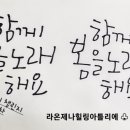 함께
봄을노래
해요
함께
봄을노래
해요
라온제나힐링아틀리에